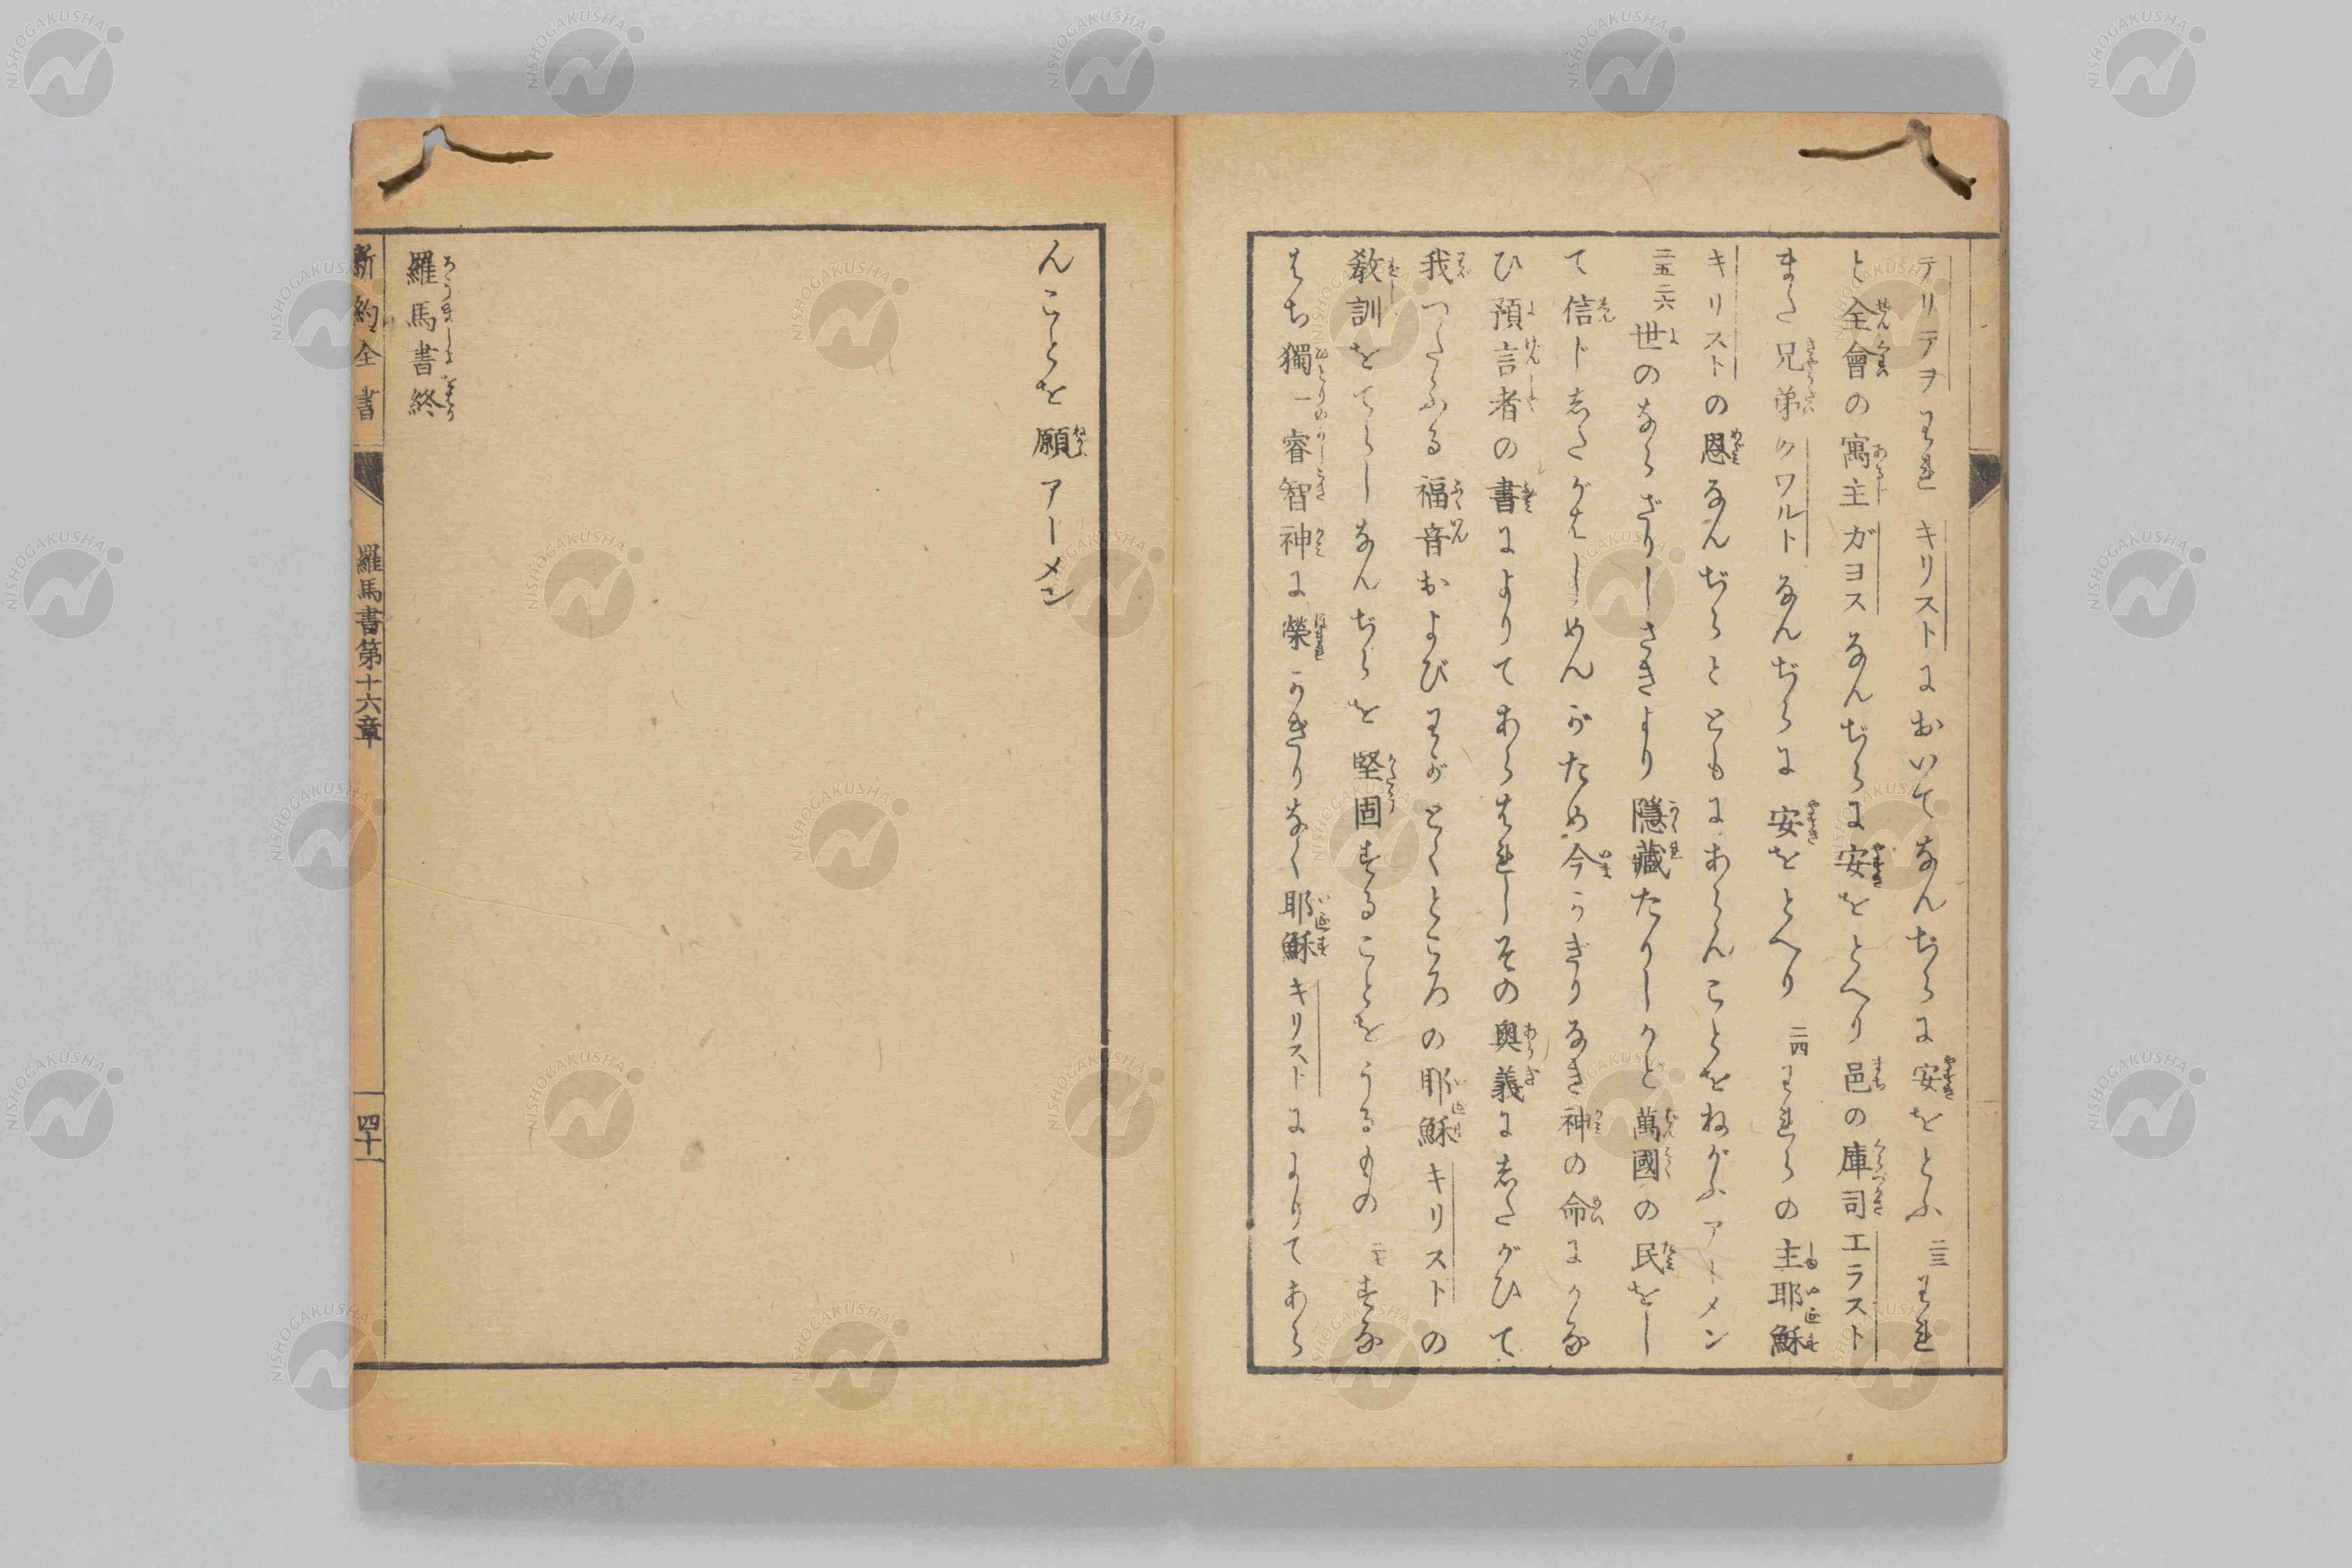 テリテヲわれキリストにおいてなんぢらに安をとふ 二三 われ
と全會の寓主ガヨスなんぢらに安をとへり邑の庫司エラスト
また兄弟クワルトなんぢらに安をとへり 二四 われらの主耶穌
キリストの恩なんぢらとともにあらんことをねがふアーメン
二五 二六 世のならざりしさきより隱藏たりしかど萬國の民をし
て信じしたがはしめんがため今かぎりなき神の命にかな
ひ預言者の書によりてあらはれしその奥義にしたがひて
我つたふる福音およびわがとくところの耶穌キリストの
敎訓をてらしなんぢらを堅固することをうるもの 二七 すな
はち獨一睿智神に榮かぎりなく耶穌キリストによりてあら
んことを願アーメン
羅馬書終
新約全書 羅馬書第十六章 四十
NISHOGAKUSHA